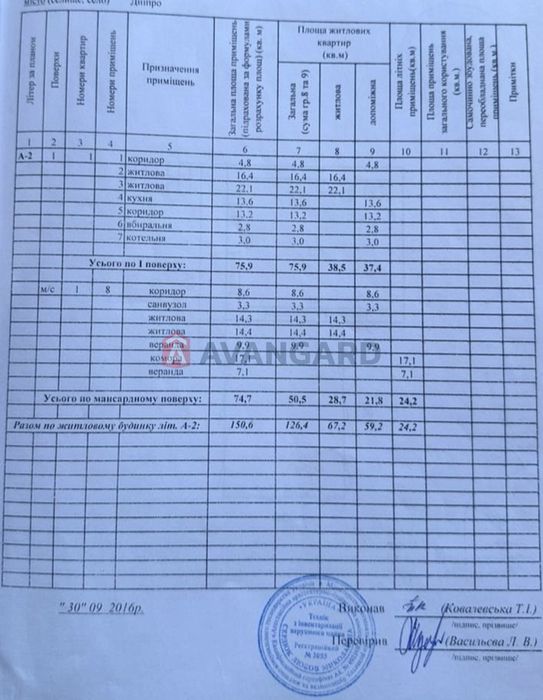 місто (селище, село) Дніпро
Літер за планом
Поверхи
Номери квартир
Номери приміщень
Призначення
приміщень
Загальна площа приміщень
(підрахована за формулами
розрахунку площ) (кв. м)
Площа житлових
квартир
(кв.м)
Загальна
(сума гр.8 та 9)
житлова
допоміжна
Площа літніх
приміщень(кв.м)
Площа приміщень
загального користування
(кв.м.)
Самочинно збудована,
переобладнана площа
приміщень (кв.м.)
Примітки
1 2 3 4 5 6 7 8 9 10 11 12 13
А-2 1 1 1 коридор 4,8 4,8 4,8
2 житлова 16,4 16,4 16,4
3 житлова 22,1 22,1 22,1
4 кухня 13,6 13,6 13,6
5 коридор 13,2 13,2 13,2
6 вбиральня 2,8 2,8 2,8
7 котельня 3,0 3,0 3,0
Усього по І поверху: 75,9 75,9 38,5 37,4
м/с 1 8 коридор 8,6 8,6 8,6
санвузол 3,3 3,3 3,3
житлова 14,3 14,3 14,3
житлова 14,4 14,4 14,4
веранда 9,9 9,9 9,9
комора 17,1 17,1
веранда 7,1 7,1
AVANGARD
Усього по мансардному поверху: 74,7 50,5 28,7 21,8 24,2
Разом по житловому будинку літ. А-2: 150,6 126,4 67,2 59,2 24,2
"30" 09 2016р.
Виконав (Ковалевська Т.І.)
/підпис, прізвище/
Перевірив (Васильєва Л. В.)
/підпис, прізвище/
УКРАЇНА
Технік
з інвентаризації
нерухомого майна
Реєстраційний